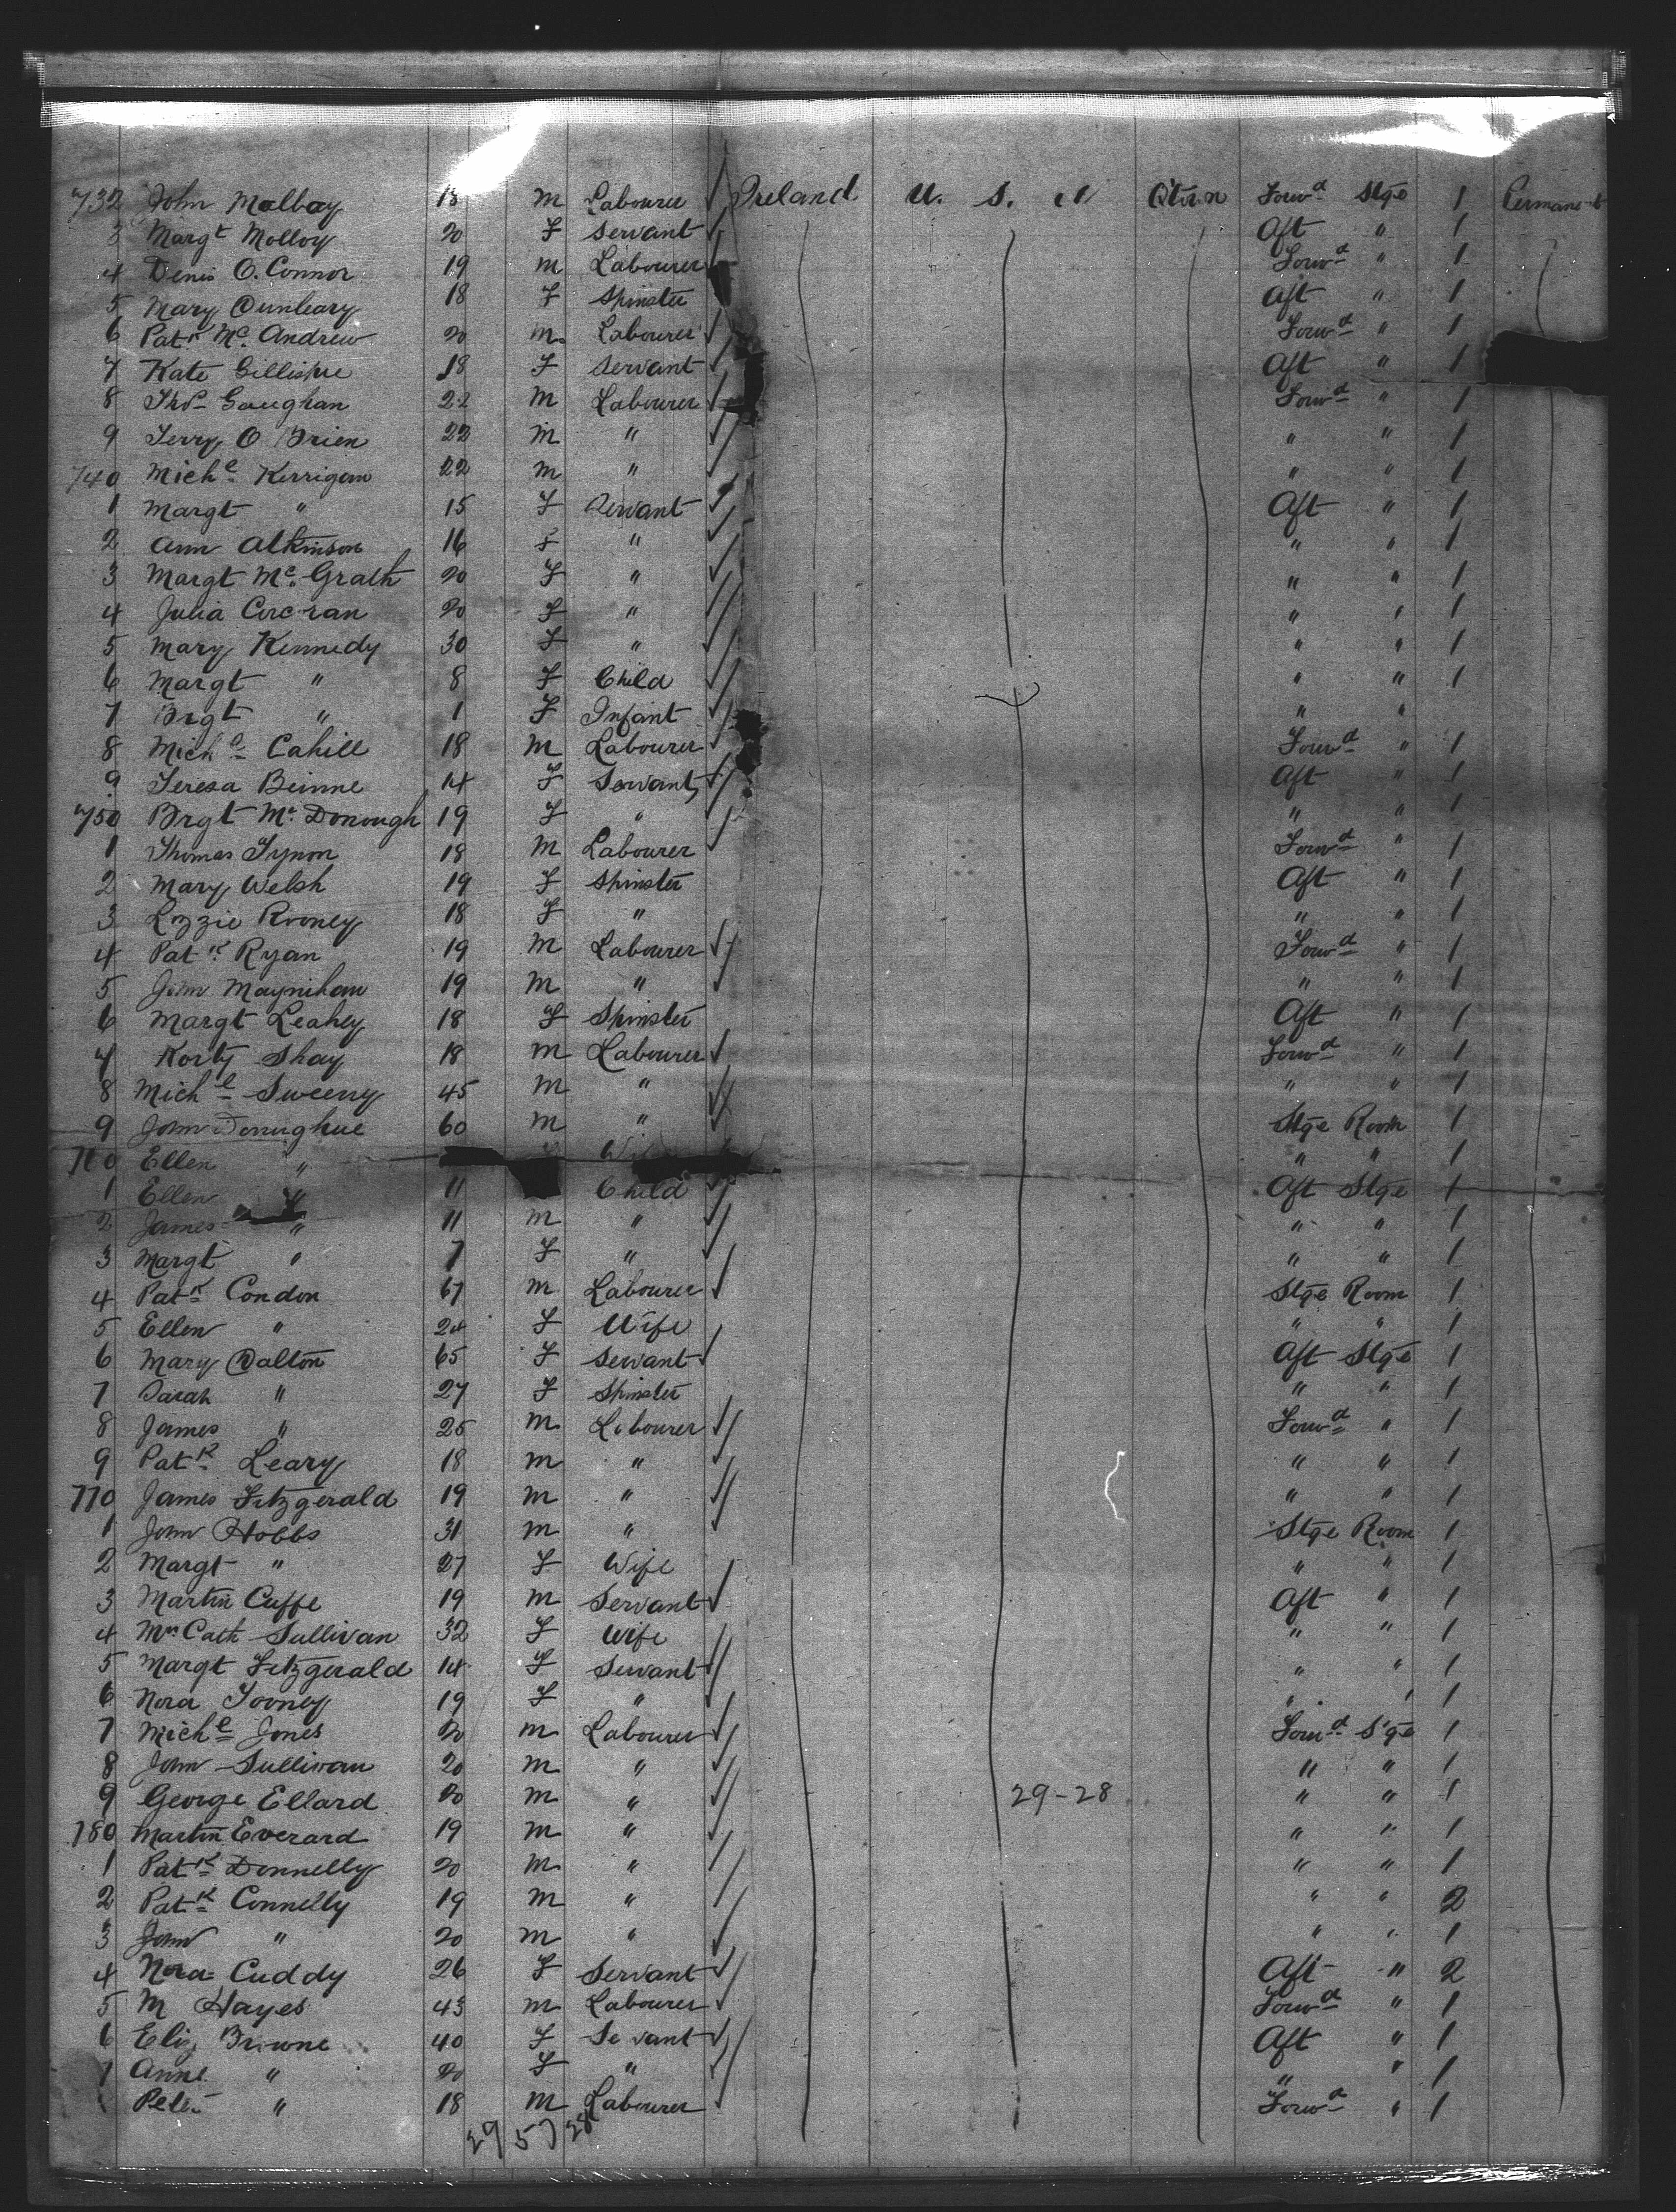 732 John Malbay 18 m Labourer √ Ireland U. S. A Qtown Forwd Stge 1 Permanent
3 Margt Molloy 20 F Servant √ Aft " 1
4 Denis O. Connor 19 m Labourer √ Forwd " 1
5 Mary Dunleavy 18 F Spinster Aft " 1
6 Patk Mc. Andrew 20 m. Labourer √ Forwd " 1
7 Kate Gillispie 18 F Servant √ Aft " 1
8 Thos Gaughan 22 m Labourer √ Forwd " 1
9 Terry O Brien 22 m " √ " " 1
740 Michl Kerrigan 22 m " √ " " 1
1 Margt " 15 F Servant √ Aft " 1
2 Ann Atkinson 16 F " √ " " 1
3 Margt Mc. Grath 20 F " √ " " 1
4 Julia Corcoran 20 F " √ " " 1
5 Mary Kennedy 30 F " √ " " 1
6 Margt " 8 F Child √ " " 1
7 Brgt " 1 F Infant √ " "
8 Michl Cahill 18 m Labourer √ Forwd " 1
9 Teresa Beirne 14 F Servant √ Aft " 1
750 Brgt Mc Donough 19 F " √ " " 1
1 Thomas Tynon 18 m Labourer √ Forwd " 1
2 Mary Welsh 19 F Spinster Aft " 1
3 Lizzie Rooney 18 F " " " 1
4 Patk Ryan 19 m Labourer √ Forwd " 1
5 John Maynihan 19 m " √ " " 1
6 Margt Leahey 18 F Spinster Aft " 1
7 Korty Shay 18 m Labourer √ Forwd " 1
8 Michl Sweeny 45 m " √ " " 1
9 John Donughue 60 m " √ Stge Room 1
760 Ellen " Wife " " 1
1 Ellen " 11 Child √ Aft Stge 1
2 James " 11 m " √ " " 1
3 Margt " 7 F " √ " " 1
4 Patk Condon 67 m Labourer √ Stge Room 1
5 Ellen " 24 F Wife " " 1
6 Mary Dalton 65 F Servant √ Aft Stge 1
7 Sarah " 27 F Spinster " " 1
8 James " 25 m Labourer √ Forwd " 1
9 Patk Leary 18 m " √ " " 1
770 James Fitzgerald 19 m " √ " " 1
1 John Hobbs 31 m " √ Stge Room 1
2 Margt " 27 F Wife " " 1
3 Martin Cuffe 19 m Servant √ Aft " 1
4 Mrs Cath Sullivan 32 F Wife " " 1
5 Margt Fitzgerald 14 F Servant √ " " 1
6 Nora Tooney 19 F " √ " " 1
7 Michl Jones 20 m Labourer √ Forwd Stge 1
8 John Sullivan 20 m " √ " " 1
9 George Ellard 20 m " √ 29-28 " " 1
780 Martin Everard 19 m " √ " " 1
1 Patk Donnelly 20 m " √ " " 1
2 Patk Connelly 19 m " √ " " 2
3 John " 20 m " √ " " 1
4 Nora Cuddy 26 F Servant √ Aft " 2
5 M Hayes 43 m Labourer √ Forwd " 1
6 Eliz Browne 40 F Servant √ Aft " 1
7 Anne " 20 F " √ " " 1
Peter " 18 m Labourer √ Forwd " 1
29 57 28